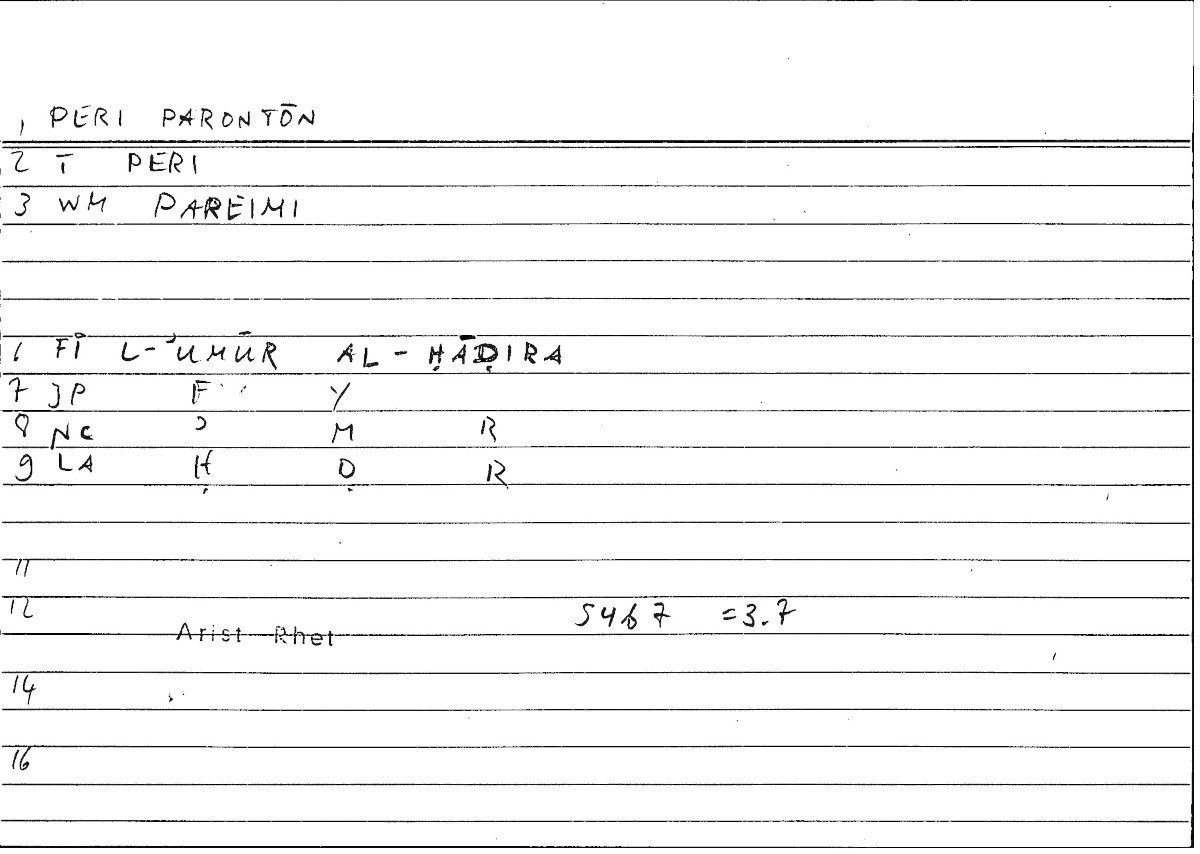 1 PERI PARONTŌN
2 T PERI
3 WM PAREIMI
6 FĪ L-ʾUMŪR AL-ḤĀḌIRA
7 JP F Y
8 NC ʾ M R
9 LA Ḥ Ḍ R
11
12 5467 =3.7
Arist Rhet
14
16